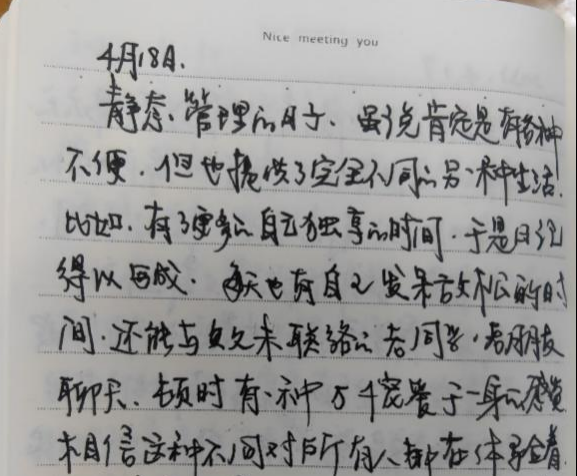 Nice meeting you
4月18日.
静态、管理的日子、虽说肯定是有各种
不便.但也提供了完全不同的另一种生活.
比如.有了更多的自己独享的时间.于是日记
得以写成.每天也有自己发呆放松的时
间.还能与良久未联络的老同学.老朋友
聊天.顿时有一种万千宠爱于一身的感觉
相信这种不同对所有人都在体验着.